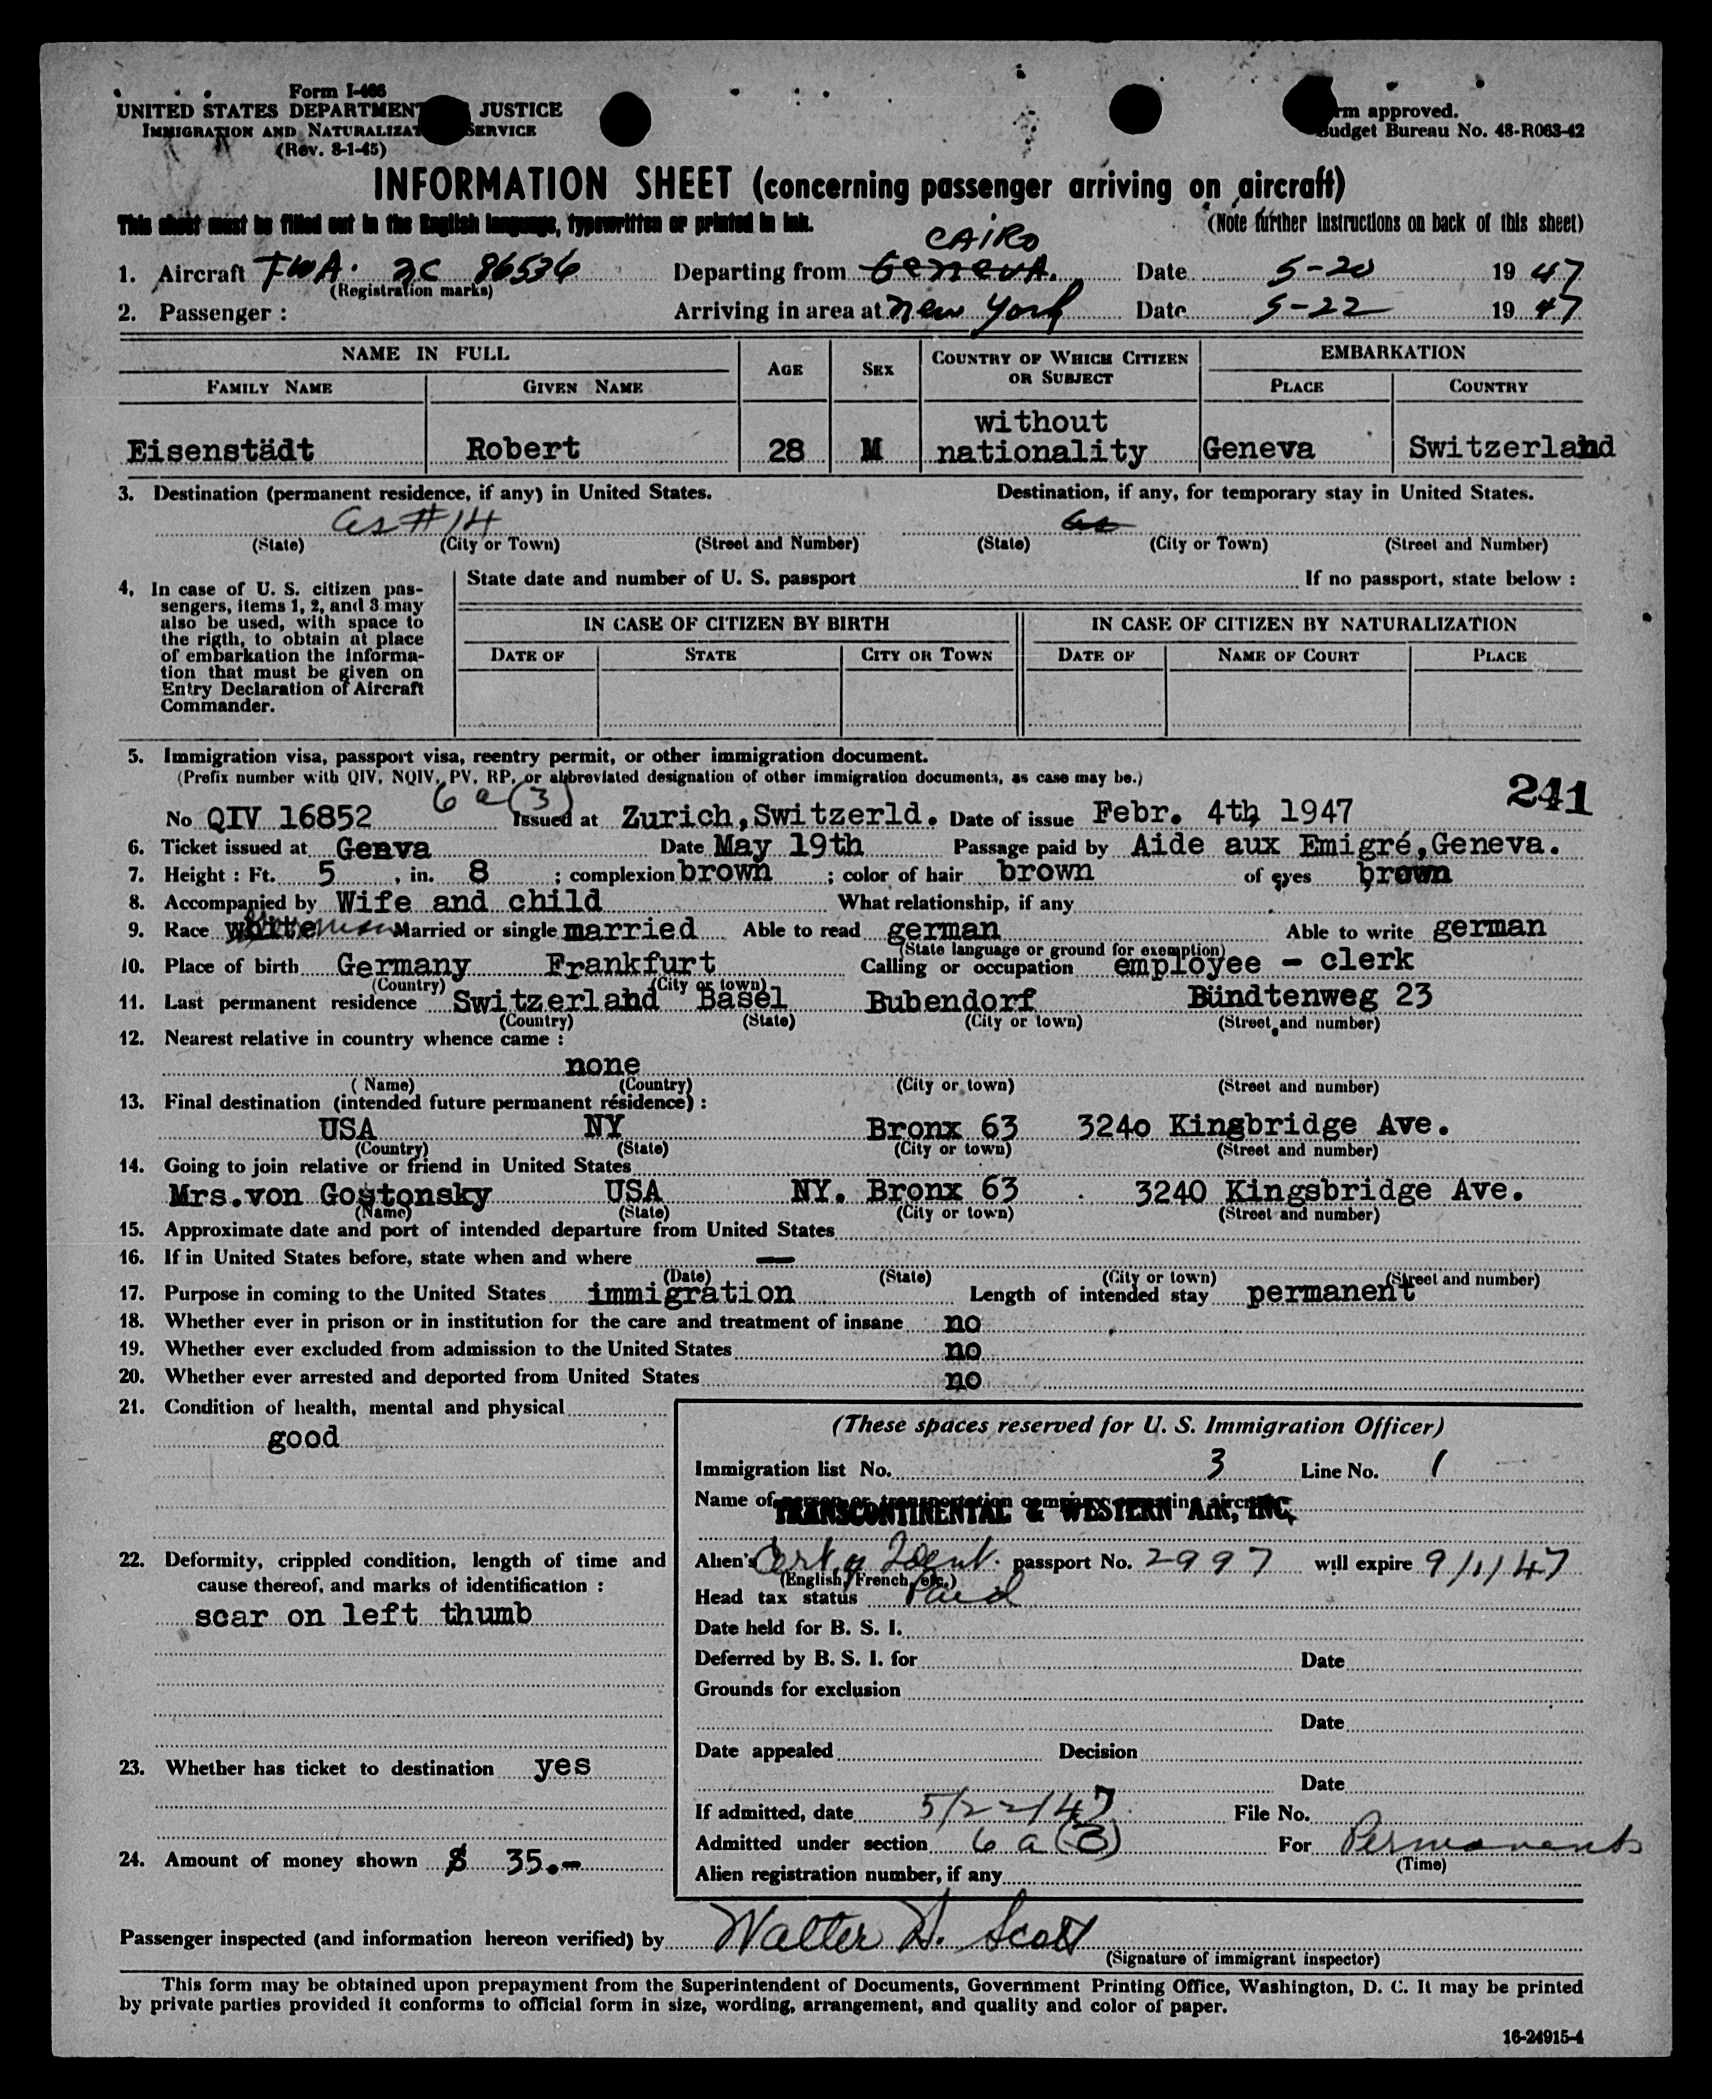 Form I-466
UNITED STATES DEPARTMENT JUSTICE
IMMIGRATION AND NATURALIZAT SERVICE
(Rev. 8-1-45)
rm approved.
Budget Bureau No. 48-R063-42
INFORMATION SHEET (concerning passenger arriving on aircraft)
This sheet must be filled out in the English language, typewritten or printed in ink.
(Note further instructions on back of this sheet)
CAIRO
1. Aircraft TWA. NC 86536 Departing from Geneva. Date 5-20 1947
(Registration marks)
2. Passenger: Arriving in area at New York Date 5-22 1947
NAME IN FULL AGE SEX COUNTRY OF WHICH CITIZEN OR SUBJECT EMBARKATION
FAMILY NAME GIVEN NAME PLACE COUNTRY
without
Eisenstädt Robert 28 M nationality Geneva Switzerland
3. Destination (permanent residence, if any) in United States. Destination, if any, for temporary stay in United States.
as #14 as
(State) (City or Town) (Street and Number) (State) (City or Town) (Street and Number)
4. In case of U. S. citizen pas-
sengers, items 1, 2, and 3 may
also be used, with space to
the rigth, to obtain at place
of embarkation the informa-
tion that must be given on
Entry Declaration of Aircraft
Commander.
State date and number of U. S. passport If no passport, state below :
IN CASE OF CITIZEN BY BIRTH IN CASE OF CITIZEN BY NATURALIZATION
DATE OF STATE CITY OR TOWN DATE OF NAME OF COURT PLACE
5. Immigration visa, passport visa, reentry permit, or other immigration document.
(Prefix number with QIV, NQIV, PV, RP, or abbreviated designation of other immigration documents, as case may be.)
241
6 a (3)
No QIV 16852 Issued at Zurich,Switzerld. Date of issue Febr. 4th 1947
6. Ticket issued at Genva Date May 19th Passage paid by Aide aux Emigré,Geneva.
7. Height : Ft. 5 , in. 8 ; complexion brown ; color of hair brown of eyes brown
8. Accompanied by Wife and child What relationship, if any
9. Race white German Married or single married Able to read german Able to write german
(State language or ground for exemption)
10. Place of birth Germany Frankfurt Calling or occupation employee - clerk
(Country) (City or town)
11. Last permanent residence Switzerland Basel Bubendorf Bündtenweg 23
(Country) (State) (City or town) (Street and number)
12. Nearest relative in country whence came :
none
(Name) (Country) (City or town) (Street and number)
13. Final destination (intended future permanent résidence) :
USA NY Bronx 63 324o Kingbridge Ave.
(Country) (State) (City or town) (Street and number)
14. Going to join relative or friend in United States
Mrs.von Gostonsky USA NY. Bronx 63 3240 Kingsbridge Ave.
(Name) (State) (City or town) (Street and number)
15. Approximate date and port of intended departure from United States
16. If in United States before, state when and where —
(Date) (State) (City or town) (Street and number)
17. Purpose in coming to the United States immigration Length of intended stay permanent
18. Whether ever in prison or in institution for the care and treatment of insane no
19. Whether ever excluded from admission to the United States no
20. Whether ever arrested and deported from United States no
21. Condition of health, mental and physical
good
22. Deformity, crippled condition, length of time and
cause thereof, and marks of identification :
scar on left thumb
23. Whether has ticket to destination yes
24. Amount of money shown $ 35.-
(These spaces reserved for U. S. Immigration Officer)
Immigration list No. 3 Line No. 1
Name of person or transportation company operating aircraft
TRANSCONTINENTAL & WESTERN AIR, INC.
Alien's Cert. of Ident. passport No. 2997 will expire 9/1/47
(English, French, etc.)
Head tax status Paid
Date held for B. S. I.
Deferred by B. S. I. for Date
Grounds for exclusion
Date
Date appealed Decision
Date
If admitted, date 5/22/47 File No.
Admitted under section 6 a (3) For Permanent
(Time)
Alien registration number, if any
Passenger inspected (and information hereon verified) by Walter H. Scott
(Signature of immigrant inspector)
This form may be obtained upon prepayment from the Superintendent of Documents, Government Printing Office, Washington, D. C. It may be printed
by private parties provided it conforms to official form in size, wording, arrangement, and quality and color of paper.
16-24915-4